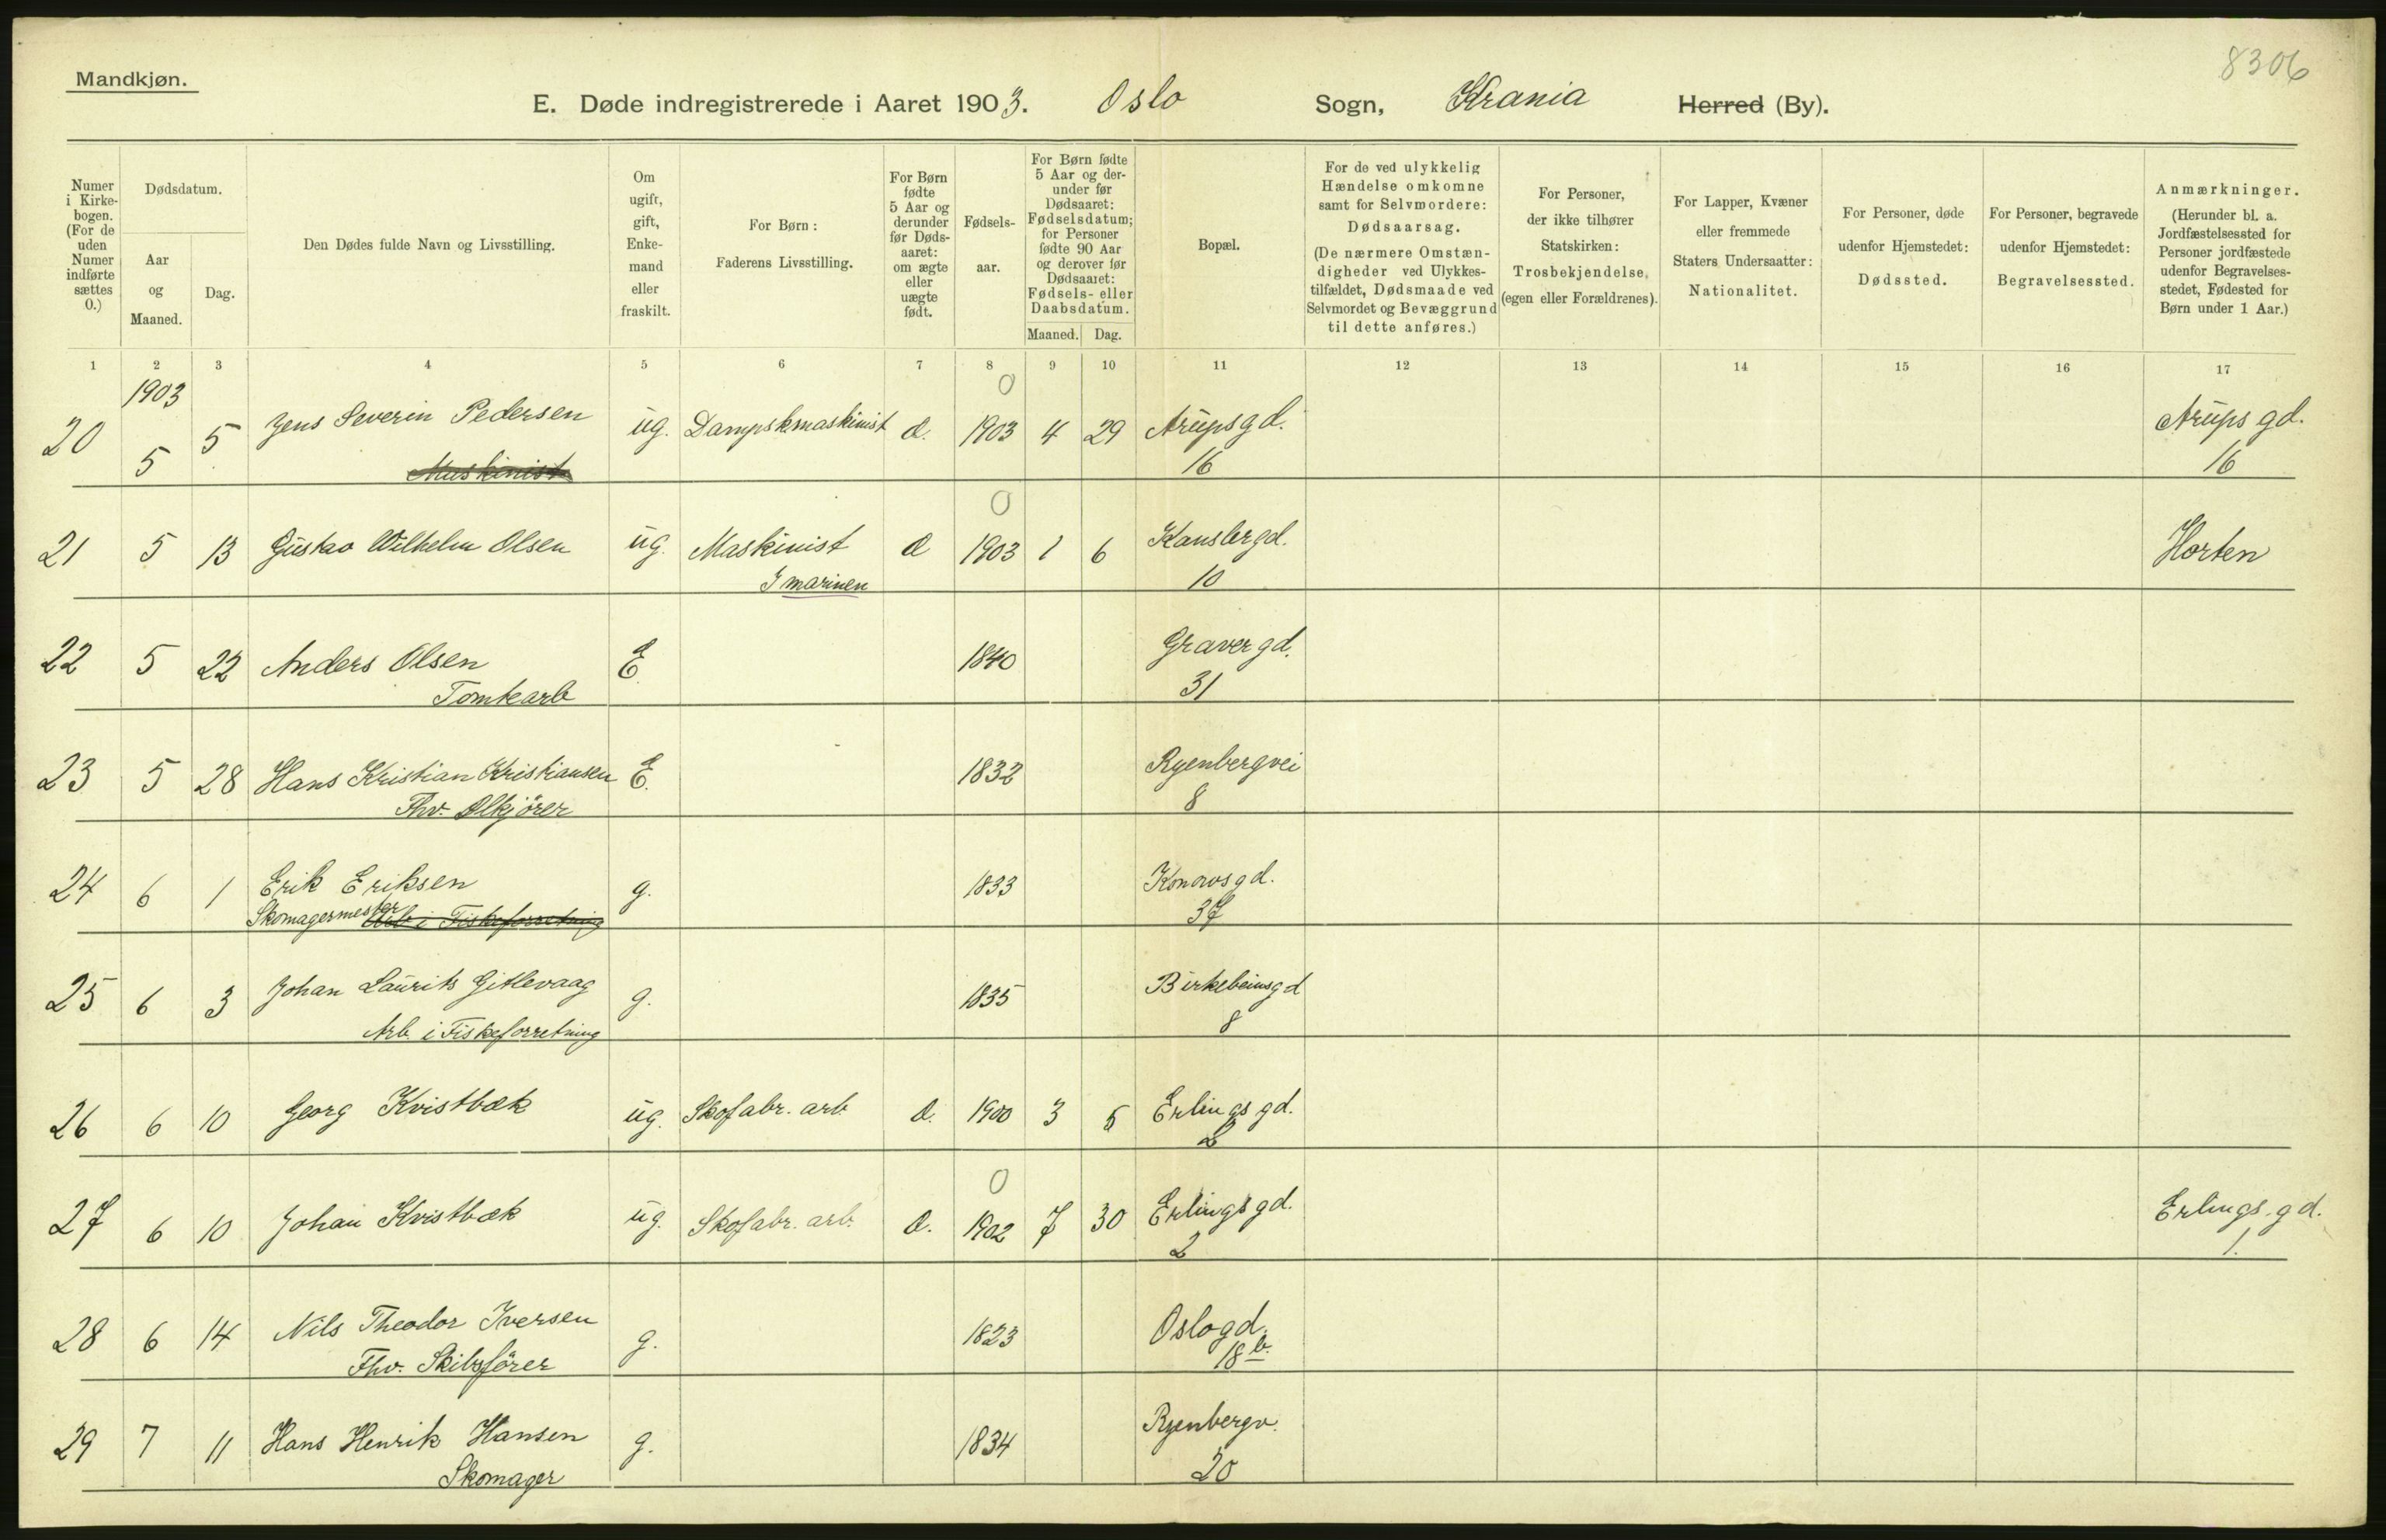 8306
Mandkjøn.
E. Døde indregistrerede i Aaret 1903. Oslo Sogn, Krania Herred (By).
Numer i Kirkebogen. (For de uden Numer indførte sættes 0.)
Dødsdatum.
Aar og Maaned.
Dag.
Den Dødes fulde Navn og Livsstilling.
Om ugift, gift, Enkemand eller fraskilt.
For Børn: Faderens Livsstilling.
For Børn fødte 5 Aar og derunder før Dødsaaret: om ægte eller uægte født.
Fødselsaar.
For Børn fødte 5 Aar og derunder før Dødsaaret: Fødselsdatum; for Personer fødte 90 Aar og derover før Dødsaaret: Fødsels- eller Daabsdatum.
Maaned. Dag.
Bopæl.
For de ved ulykkelig Hændelse omkomne samt for Selvmordere: Dødsaarsag. (De nærmere Omstændigheder ved Ulykkestilfældet, Dødsmaade ved Selvmordet og Bevæggrund til dette anføres.)
For Personer, der ikke tilhører Statskirken: Trosbekjendelse (egen eller Forældrenes).
For Lapper, Kvæner eller fremmede Staters Undersaatter: Nationalitet.
For Personer, døde udenfor Hjemstedet: Dødssted.
For Personer, begravede udenfor Hjemstedet: Begravelsessted.
Anmærkninger. (Herunder bl. a. Jordfæstelsessted for Personer jordfæstede udenfor Begravelsesstedet, Fødested for Børn under 1 Aar.)
1 2 3 4 5 6 7 8 9 10 11 12 13 14 15 16 17
1903 0
20 5 5 Jens Severin Pedersen ug. Dampskmaskinist d. 1903 4 29 Arupsgd. Arups gd.
Maskinist 16 16
0
21 5 13 Gustav Wilhelm Olsen ug. Maskinist d 1903 1 6 Kanslergd. Horten
I marinen 10
22 5 22 Anders Olsen E. 1840 Gravergd.
Tomtearb 31
23 5 28 Hans Kristian Kristiansen E. 1832 Ryenbergvei
Fhv. Ølkjører 8
24 6 1 Erik Eriksen g. 1833 Konowsgd.
Skomagermester Arb i Fiskeforretning 37
25 6 3 Johan Laurits Gitlevaag g. 1835 Birkebeinsgd
Arb. i Fiskeforretning 8
26 6 10 Georg Kvistbæk ug. Skofabr. arb d. 1900 3 5 Erlingsgd.
2
0
27 6 10 Johan Kvistbæk ug. Skofabr. arb d. 1902 7 30 Erlingsgd. Erlings.gd.
2 1.
28 6 14 Nils Theodor Iversen g. 1823 Oslogd.
Fhv. Skibsfører 18b.
29 7 11 Hans Henrik Hansen g. 1834 Ryenbergv.
Skomager 20